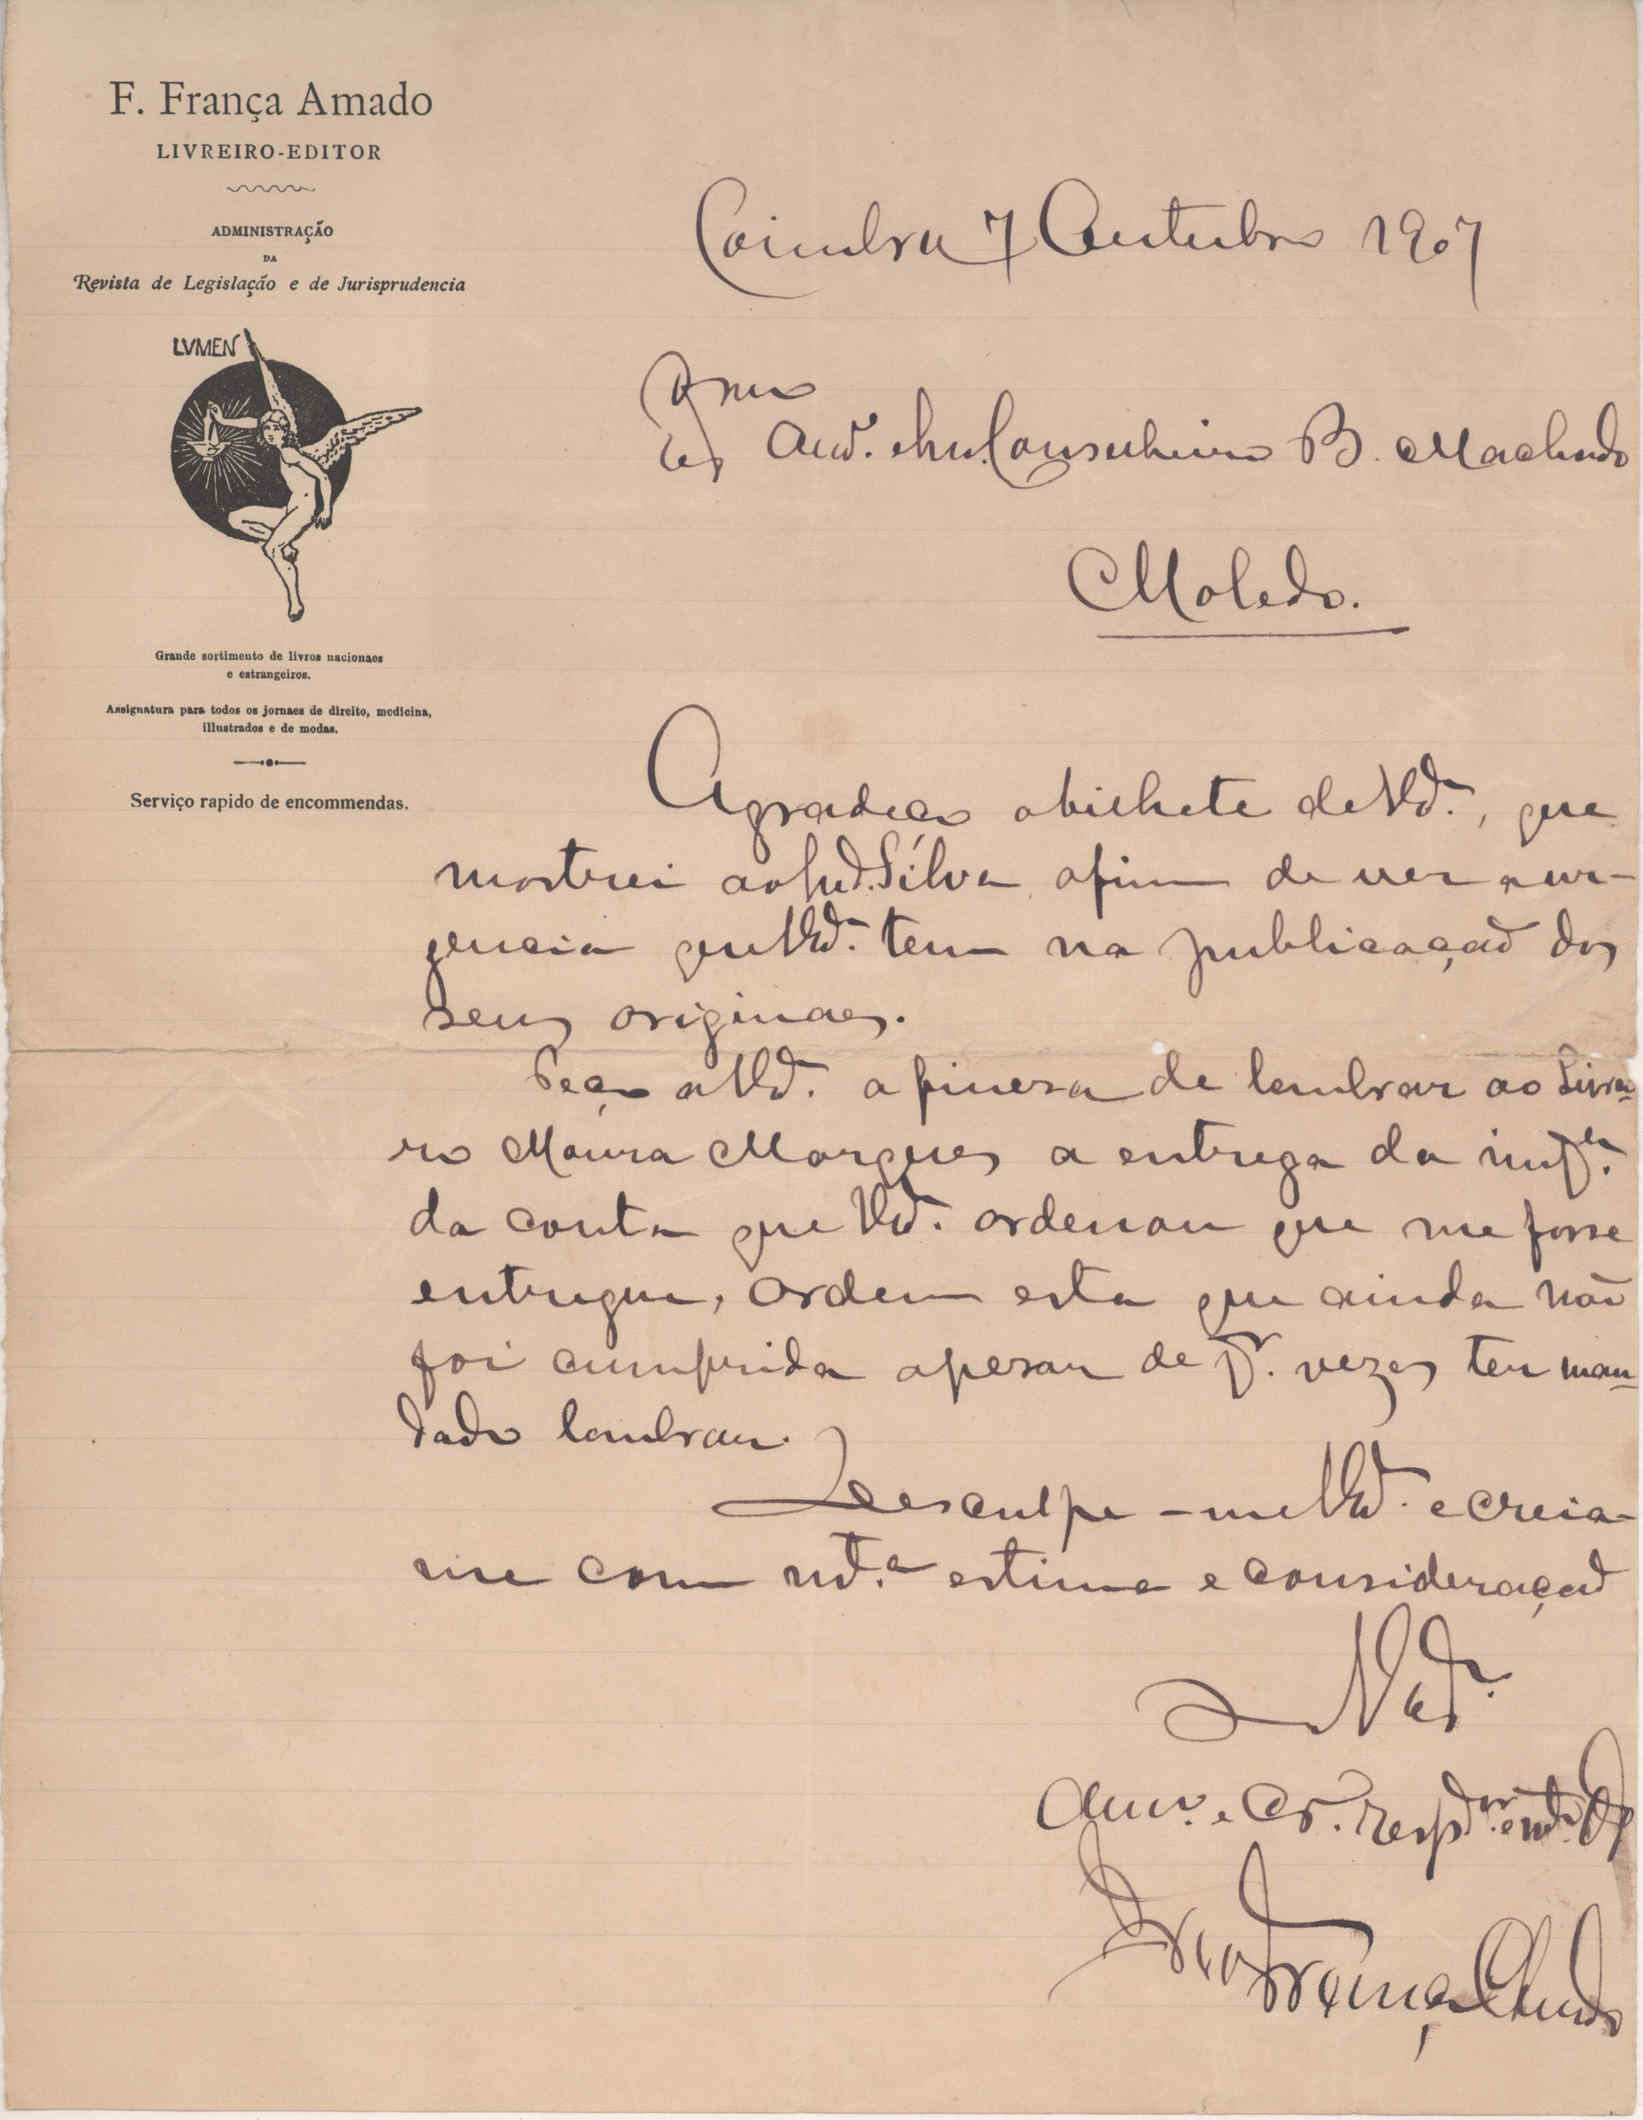 F. França Amado
LIVREIRO-EDITOR
ADMINISTRAÇÃO
DA
Revista de Legislação e de Jurisprudencia
LVMEN
Grande sortimento de livros nacionaes
e estrangeiros.
Assignatura para todos os jornaes de direito, medicina,
illustrados e de modas.
Serviço rapido de encommendas.
Coimbra 7 Outubro 1907
Conselheiro B. Machado
Moledo.
Agradeço o bilhete de V. Ex.ª, que
mostrei ao Silva afim de ver a ur-
gencia que V. Ex.ª tem na publicação dos
seus originaes.
Peço a V. Ex.ª a finesa de lembrar ao Livrei-
ro Moura Marques a entrega da imp.ª
da conta que V. Ex.ª ordenou que me fosse
entregue, ordem esta que ainda não
foi cumprida apesar de p.r vezes ter man-
dado lembrar.
Desculpe-me V. Ex.ª e creia-
me com m.ta estima e consideração
De V. Ex.ª
Am.º e Cr.º
França Amado